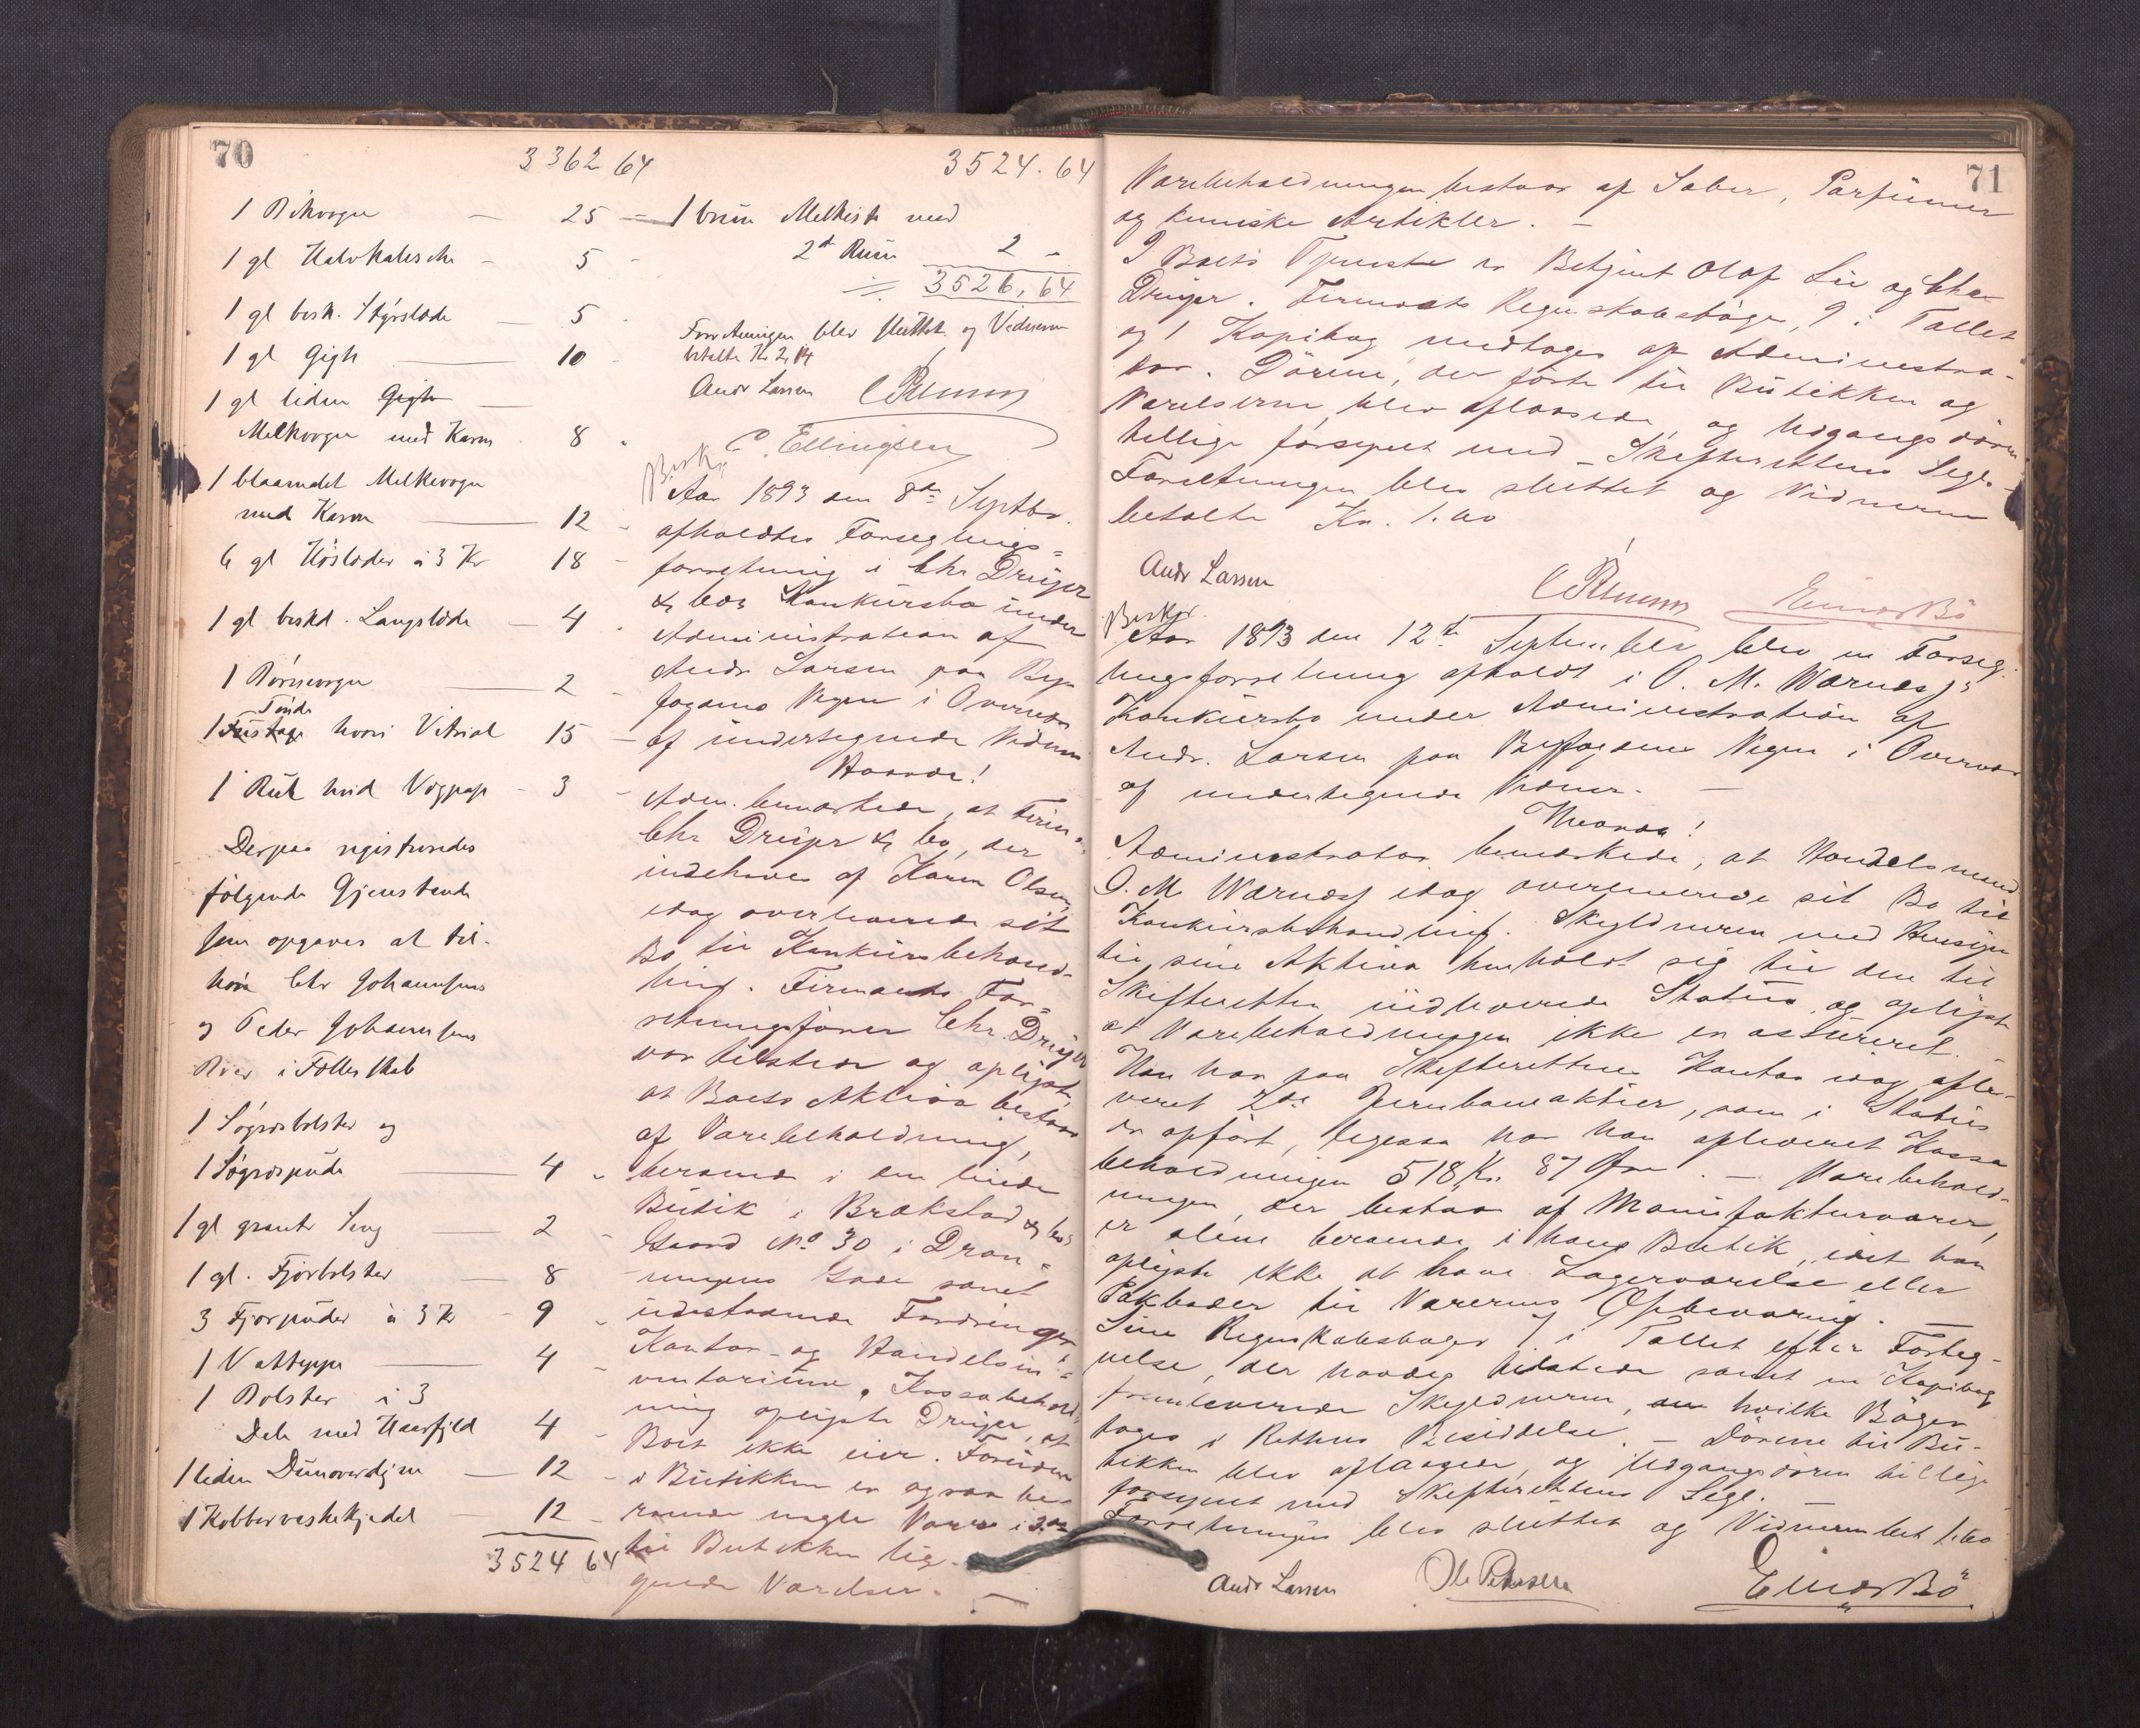 70
3362 64
1 Bikvogn — 25 —
1 gl Halvkalesche — 5 -
1 gl besk. Stysslæde — 5 -
1 gl Gigh — 10 -
1 gl liden Gigh —
Melkvogn med Karm 8 "
1 blaamalet Melkevogn
med Karm — 12 -
6 gl Høslæder à 3 Kr 18 -
1 gl beskd. Langslæde — 4 -
1 Børnevogn — 2 -
Tønde
1 Fustage hvori Vitriol 15 -
1 Rul hvid Vægpap - 3 -
Derpaa registreredes
følgende Gjenstande
som opgaves at til-
høre Chr Johannesens
og Peder Johannesens
Boer i Fællesskab
1 Søgræsbolster og
1 Søgræspude — 4 -
1 gl grønt Seng — 2 -
1 gl. Fjørbolster — 8
3 Fjørpuder à 3 Kr - 9 -
1 Vattæppe — 4 -
1 Bolster i 3
Dele med Haarfyld 4 -
1 liden Dunoverdyne — 12 -
1 Kobbervaskekjedel — 12 -
3524 64
3524. 64
1 brun Melkist med
2de Rum 2 -
3526, 64
Forretningen blev sluttet og Vidnerne
betalte Kr 2,14
Andr Larsen
C. Ellingsen
Besk.
Aar 1893 den 8de Septbr.
afholdtes Forseglings-
forretning i Chr Dreyer
& Cos Konkursbo under
Administration af
Andr Larsen paa By-
fogdens Vegne i Overvær
af undertegnede Vidner
Hvorda!
Adm. bemærkede, at Firma
Chr Dreyer & Co, der
indehaves af Karen Olsen,
idag overleverede sit
Bo til Konkursbehand-
ling. Firmaets For-
retningsfører Chr. Dreyer
var tilstede og oplyste,
at Boets Aktiva bestaar
af Varebeholdning,
beroende i en leiede
Butik i Brækstad & Cos
Gaard No 30 i Dron-
ningens Gade samt
udestaaende Fordringer,
Kontor- og Handelsin-
ventarium. Kassabehold-
ning oplyste Dreyer, at
Boet ikke eier. Foruden
i Butikken er ogsaa be-
roende nogle Varer i 3de
til Butikken lig-
gende Værelser. —
71
Varebeholdningen bestaar af Sæber, Parfumer
og kemiske Artikler. —
I Boets Tjeneste er Betjent Olaf Lie og Chr
Dreyer. Firmaets Regnskabsbøger, 9 i Tallet
og 1 Kopibog medtoges af Administra-
tor. Dørene, der førte til Butikken og
Værelserne blev aflaasede, og Udgangsdøren
tillige forseglet med Skifterettens Segl. —
Forretningen blev sluttet og Vidnerne
betalte Kr. 1.60
Andr Larsen
Einar Bö
Beskr.
Aar 1893 den 12te September blev en Forseg-
lingsforretning afholdt i O. M. Wærnes's
Konkursbo under Administration af
Andr. Larsen paa Byfogdens Vegne i Overvær
af undertegnede Vidner. —
Hvorda!
Administrator bemærkede, at Handelsmand
O. M Wærnes idag overleverede sit Bo til
Konkursbehandling. Skyldneren med Hensyn
til sine Aktiva henholdt sig til den til
Skifteretten indleverede Status og oplyste
at Varebeholdningen ikke er assureret. —
Han har paa Skifterettens Kontor idag afle-
veret 2de Jernbaneaktier, som i Status
er opført, ligesaa har han afleveret Kassa
beholdningen 518 Kr. 87 Øre. — Varebehold-
ningen, der bestaar af Manufakturvarer,
er alene beroende i hans Butik, idet han
oplyste ikke at have Lagerværelse eller
Pakboder til Varernes Opbevaring. —
Sine Regnskabsbøger 7 i Tallet efter Forteg-
nelse, der havdes tilstede samt en Kopibog
fremleverede Skyldneren, hvilke Bøger
toges i Rettens Besiddelse. — Dørene til Bu-
tikken blev aflaasede, og Udgangsdøren tillige
forseglet med Skifterettens Segl. —
Forretningen blev sluttet og Vidnerne bet 1.60
Andr Larsen
Ole Pedersen
Einar Bö